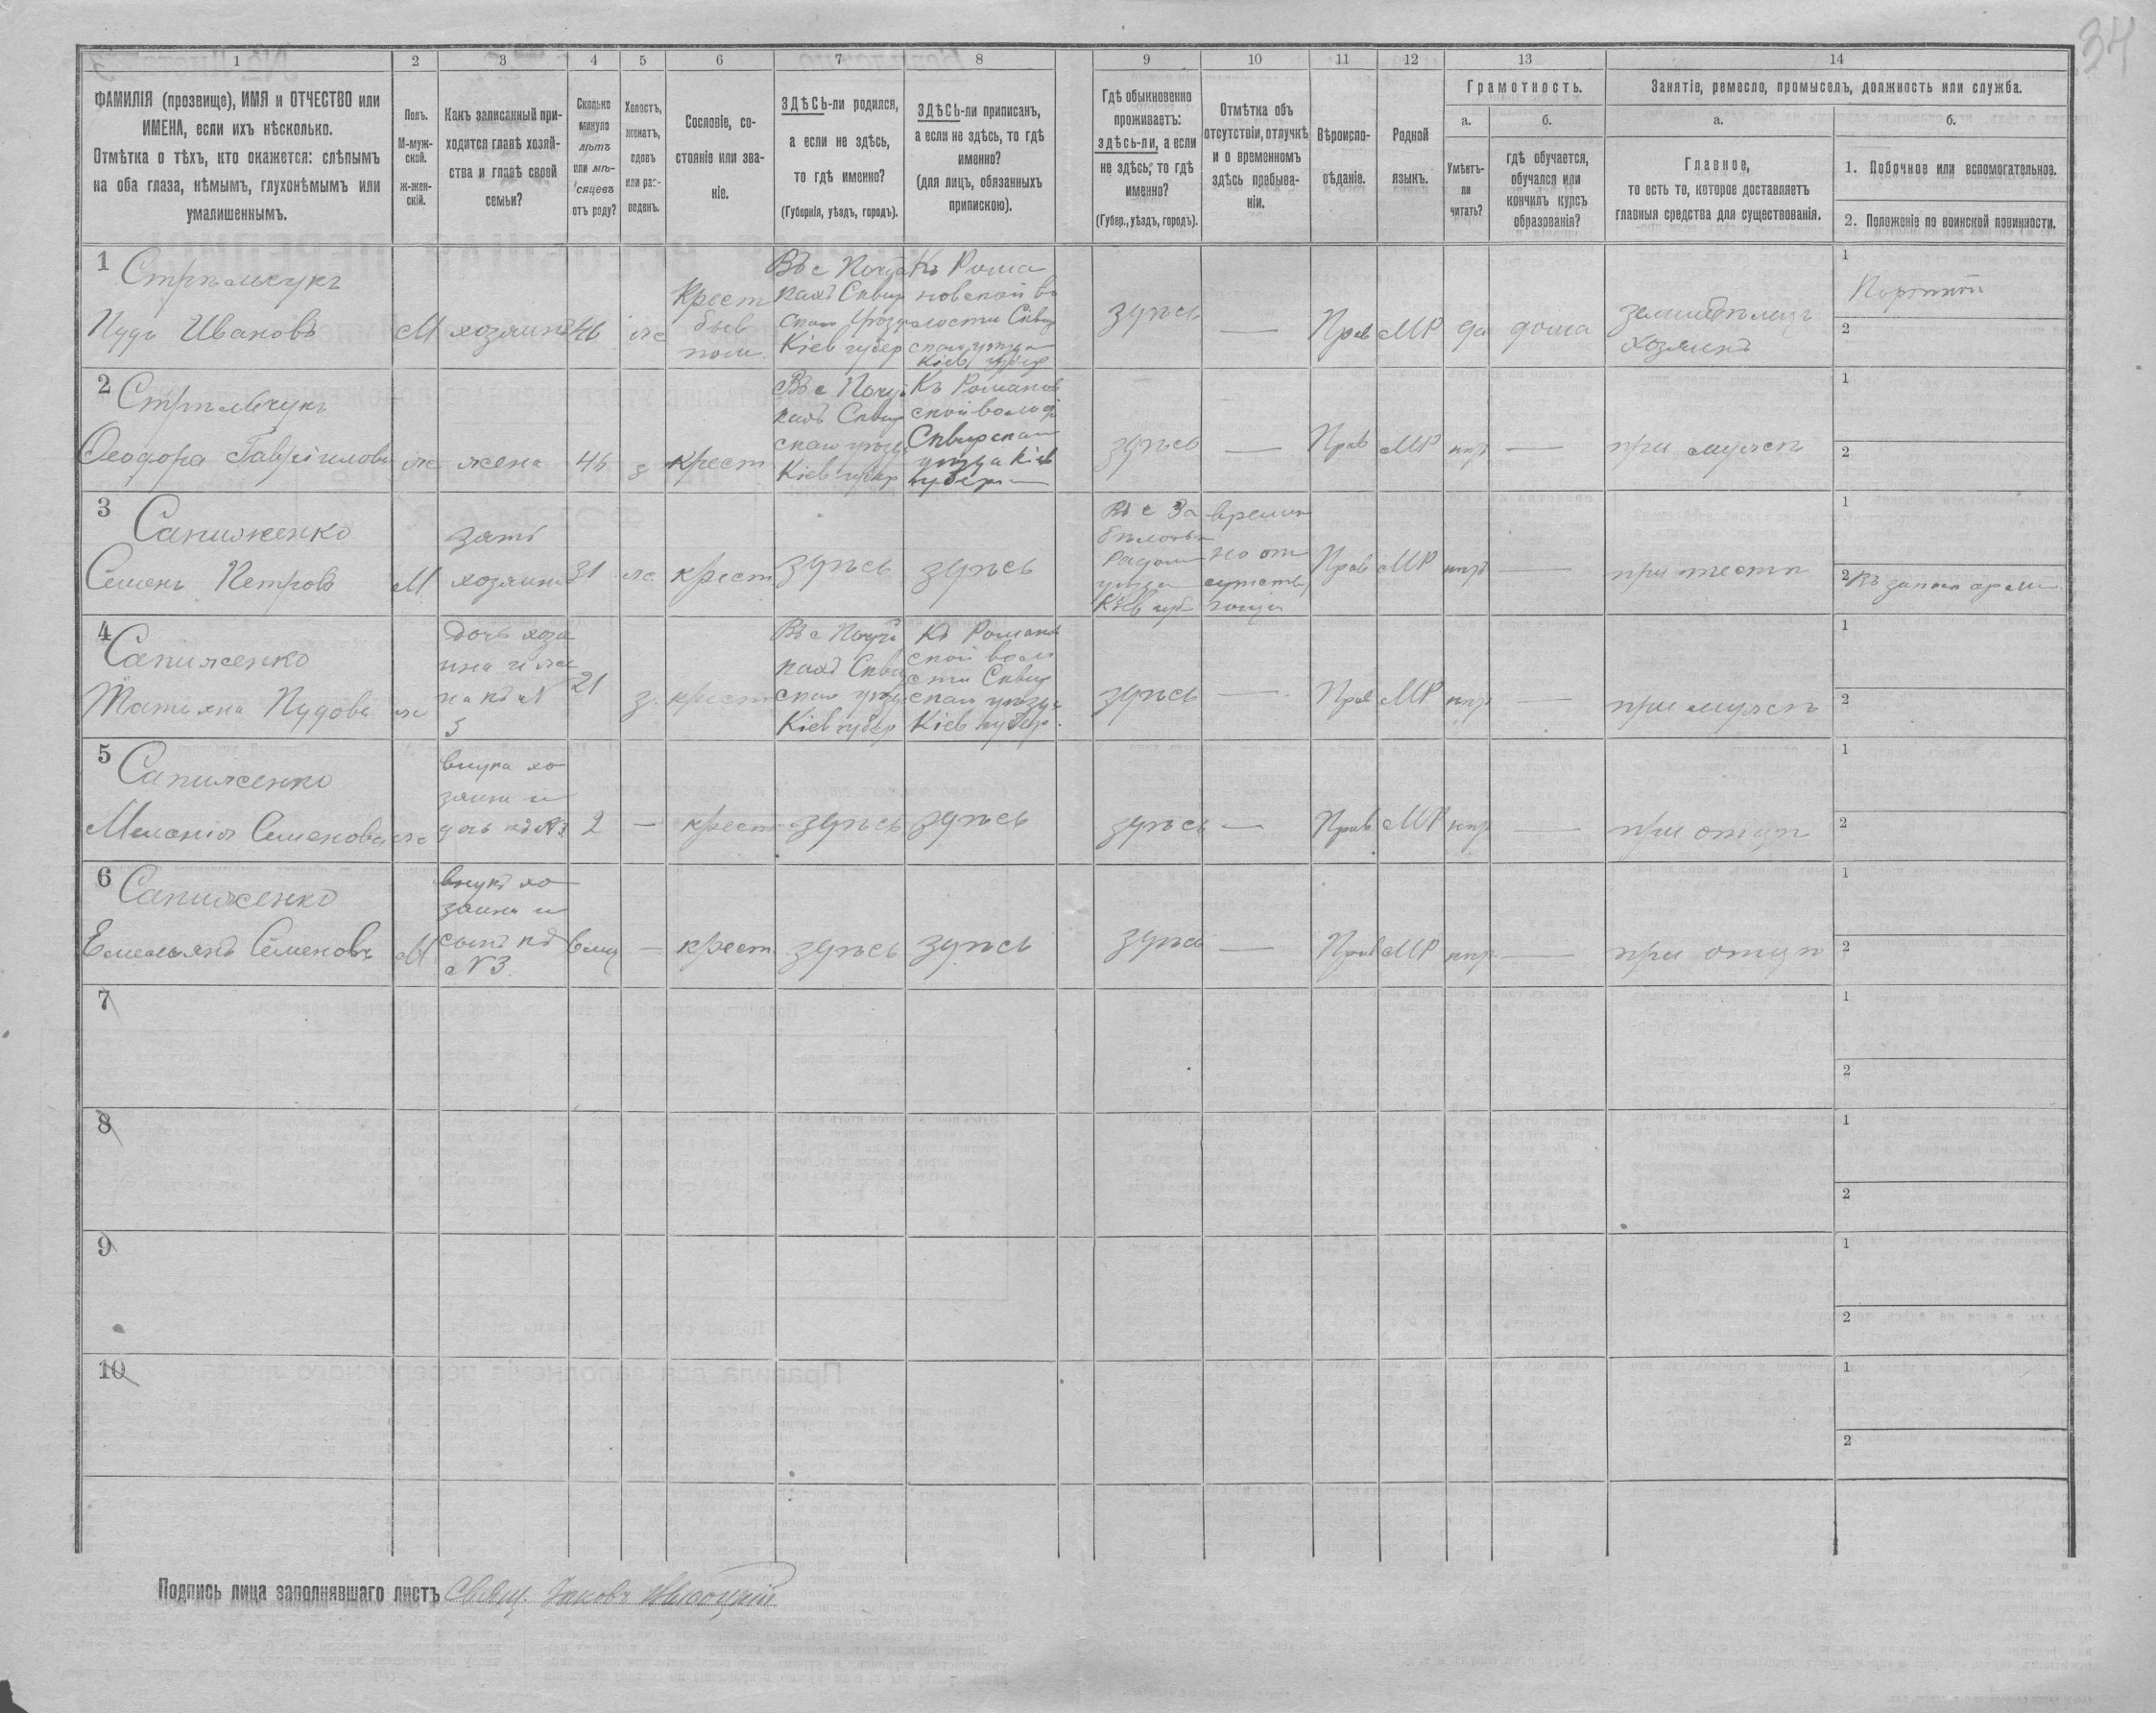 34
1 2 3 4 5 6 7 8 9 10 11 12 13 14
ФАМИЛІЯ (прозвище), ИМЯ и ОТЧЕСТВО или
ИМЕНА, если ихъ нѣсколько.
Отмѣтка о тѣхъ, кто окажется: слѣпымъ
на оба глаза, нѣмымъ, глухонѣмымъ или
умалишеннымъ.
Полъ.
М-муж-
ской.
Ж-жен-
скій.
Какъ записанный при-
ходится главѣ хозяй-
ства и главѣ своей
семьи?
Сколько
минуло
лѣтъ
или мѣ-
сяцевъ
отъ роду?
Холостъ,
женатъ,
вдовъ
или раз-
веденъ.
Сословіе, со-
стояніе или зва-
ніе.
ЗДѢСЬ-ли родился,
а если не здѣсь,
то гдѣ именно?
(Губернія, уѣздъ, городъ).
ЗДѢСЬ-ли приписанъ,
а если не здѣсь, то гдѣ
именно?
(для лицъ, обязанныхъ
припискою).
Гдѣ обыкновенно
проживаетъ:
здѣсь-ли, а если
не здѣсь, то гдѣ
именно?
(Губер., уѣздъ, городъ).
Отмѣтка объ
отсутствіи, отлучкѣ
и о временномъ
здѣсь пребыва-
ніи.
Вѣроиспо-
вѣданіе.
Родной
языкъ.
Грамотность.
а.
Умѣетъ-
ли
читать?
б.
гдѣ обучается,
обучался или
кончилъ курсъ
образованія?
Занятіе, ремесло, промыселъ, должность или служба.
а.
Главное,
то есть то, которое доставляетъ
главныя средства для существованія.
б.
1. Побочное или вспомогательное.
2. Положеніе по воинской повинности.
1 Стрѣльчукъ
Пудъ Ивановъ
М хозяинъ 46 ж
Крест
Въ с
Къ Рома
новской во
Кіев губер
здѣсь — Прав МР да дома
хозяинъ
1
2
2 Стрѣльчукъ
Ѳеодора
ж жена 46 з крест
Въ с
Кіев губер
Къ Романов
ской
Сквирскаго
уѣзда Кіев
губер
здѣсь — Прав МР нѣт — при мужѣ
1
2
3 Сапиженко
Семенъ Петровъ
М
зять
хозяина
31 ж крест здѣсь здѣсь
Въ с За
Радом
уѣзда
Кіев губ
времен
но от
Прав МР нѣт — при тестѣ
1
2 Въ запасѣ арміи
4 Сапиженко
Татьяна Пудова
ж
дочь хозя
ина и же
на къ №
3
21 з. крест
Въ с
Кіев губер
Къ Романов
ской воло
сти Сквир
скаго уѣзда
Кіев губер.
здѣсь — Прав МР нѣт — при мужѣ
1
2
5 Сапиженко
Меланія Семенова
ж
внука хо
зяина и
дочь къ №3
2 — крест здѣсь здѣсь здѣсь — Прав МР нѣт — при отцѣ
1
2
6 Сапиженко
Емельянъ Семеновъ
М
внукъ хо
зяина и
сынъ къ
№3.
6 мц — крест здѣсь здѣсь — Прав МР нѣт — при отцѣ
1
2
7
1
2
8
1
2
9
1
2
10
1
2
Подпись лица заполнявшаго листъ Свящ. Іаковъ